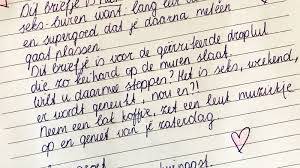 Dit briefje is
seks-buren want lang leve
en supergoed dat je daarna meteen
gaat plassen
Dit briefje is voor de gefrustreerde droplul
die zo keihard op de muren slaat
wilt u daarmee stoppen? Het is seks, weekend,
er wordt geneukt, nou en?!
Neem een bak koffie, zet een leuk muziekje
op en geniet van je zaterdag